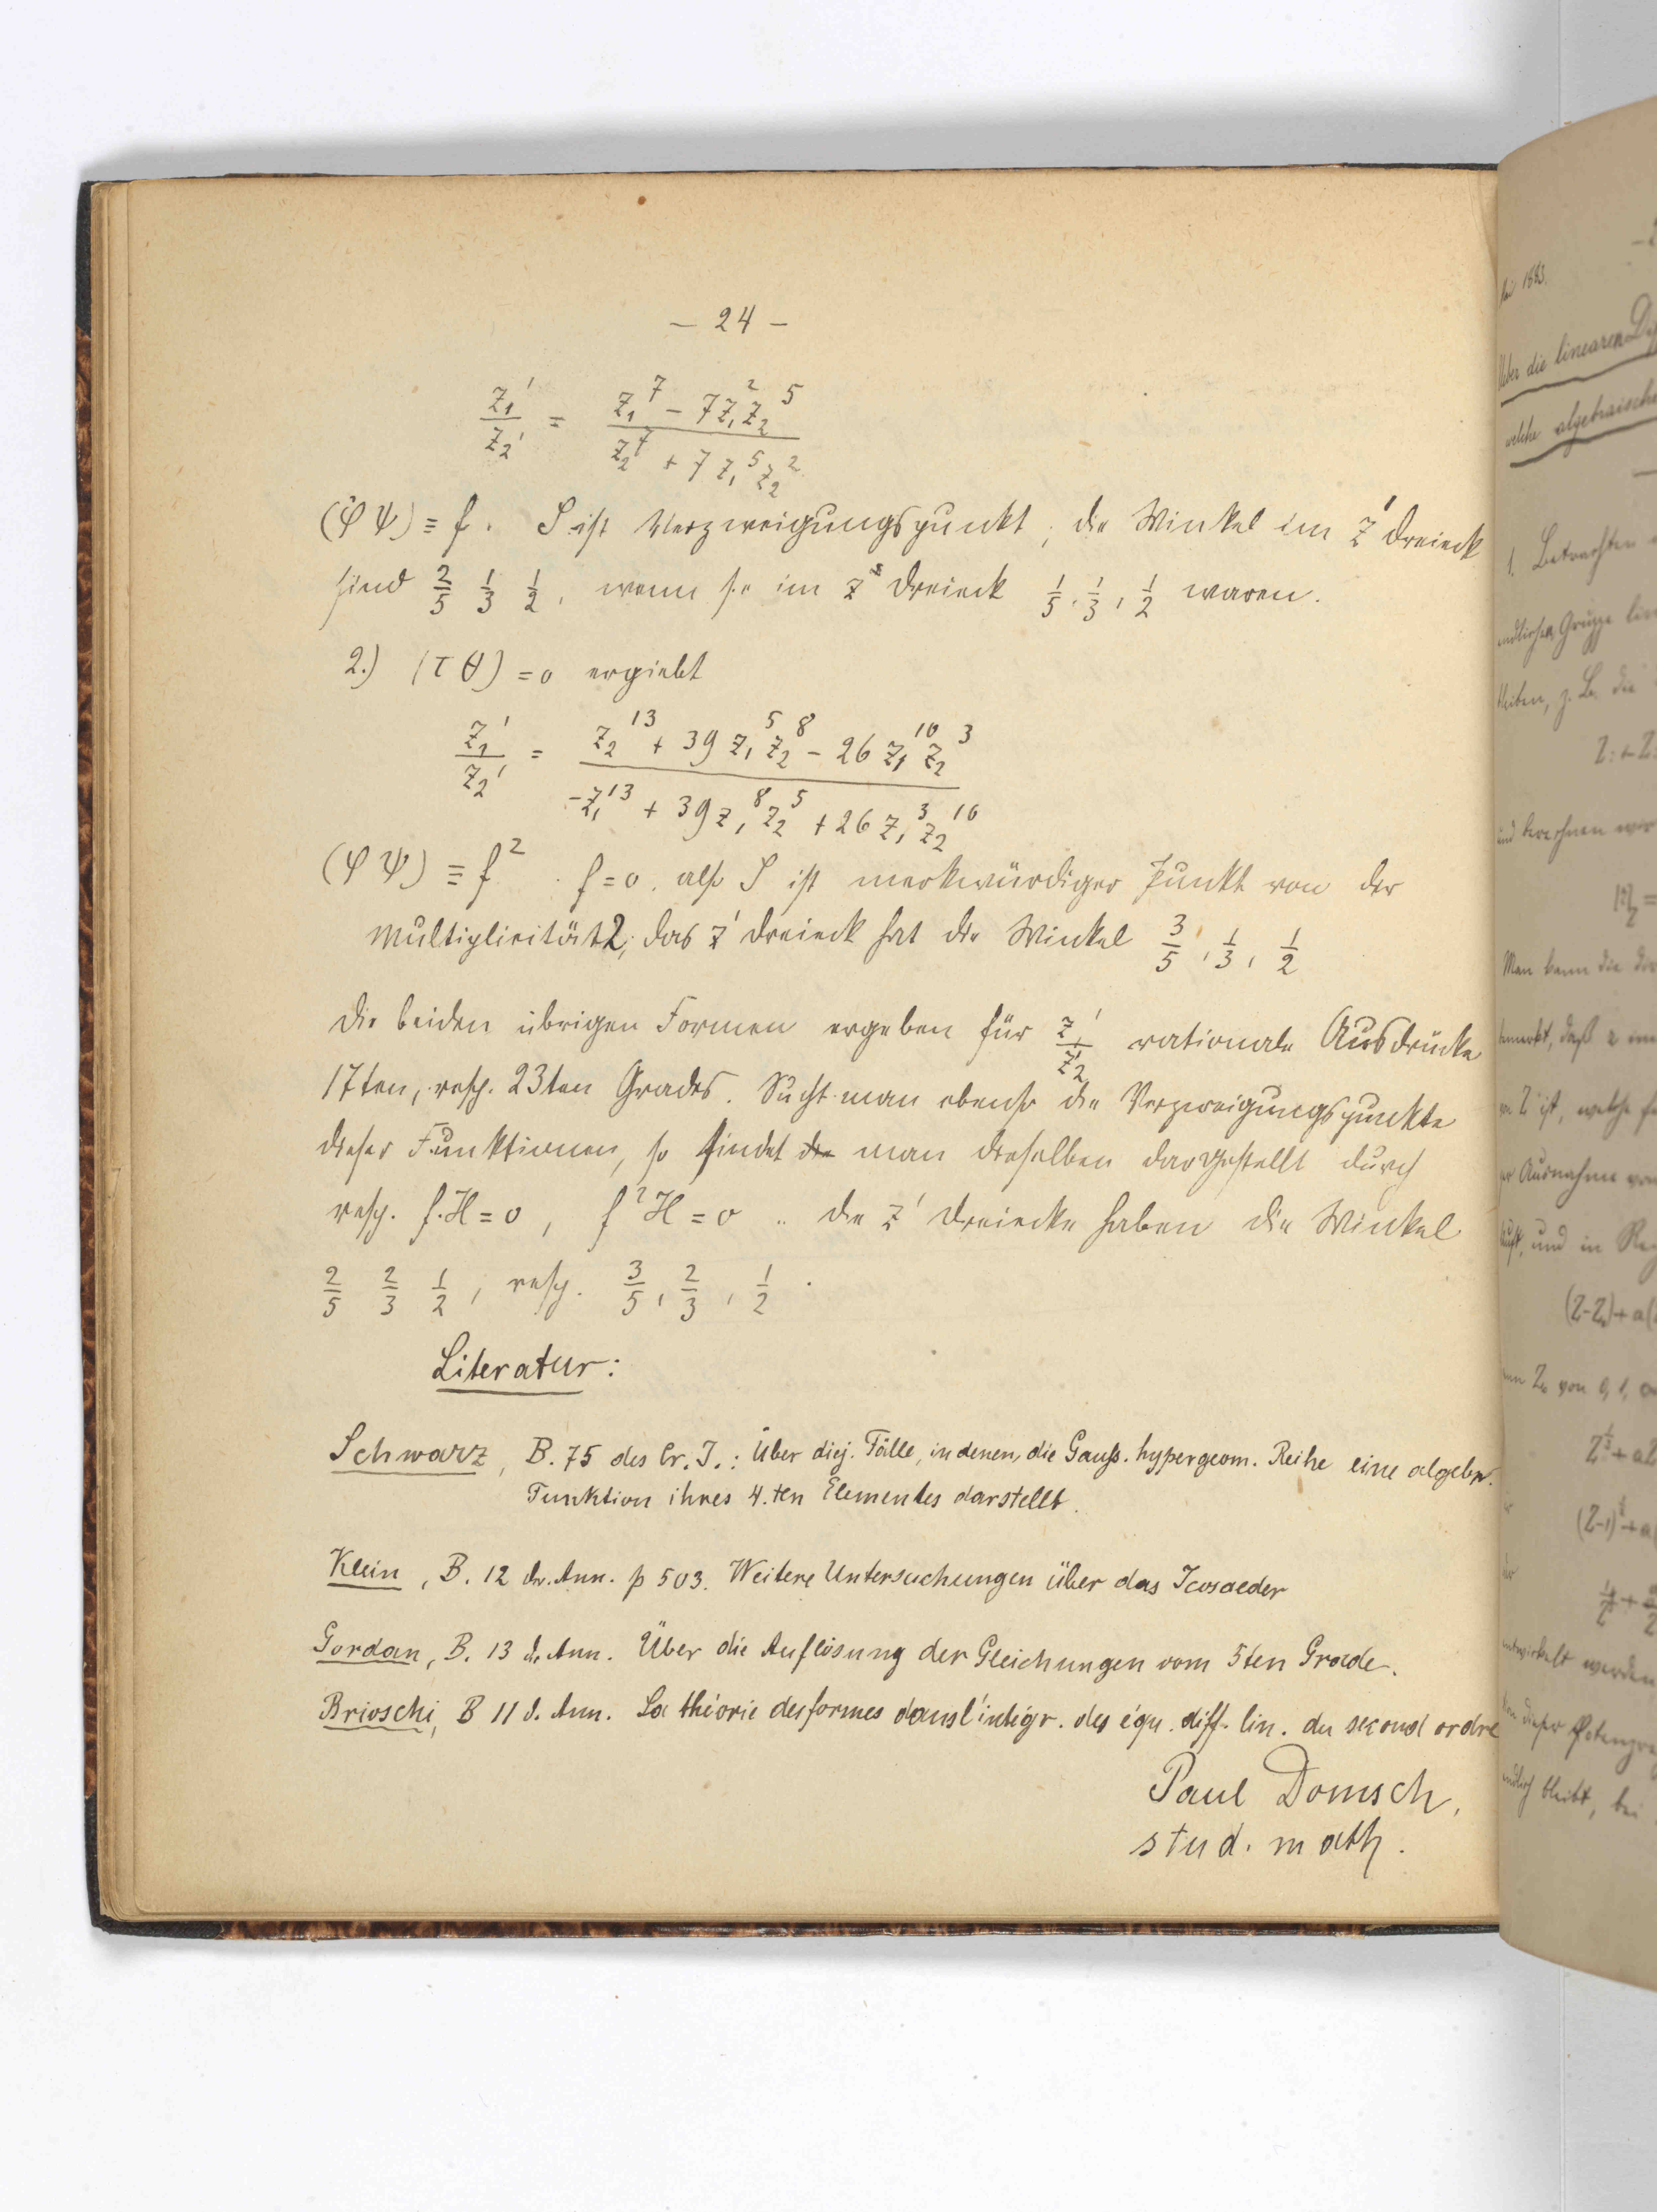 – 24 –
z₁'/z₂' = (z₁⁷ – 7z₁²z₂⁵)/(z₂⁷ + 7z₁⁵z₂²)
(φψ) ≡ f. S ist Verzweigungspunkt, die Winkel im z' Dreieck
sind 2/5 1/3 1/2, wenn sie im z Dreieck 1/5, 1/3, 1/2 waren.
2.) (τθ) = 0 ergiebt
z₁'/z₂' = (z₂¹³ + 39z₁⁵z₂⁸ – 26z₁¹⁰z₂³)/(–z₁¹³ + 39z₁⁸z₂⁵ + 26z₁³z₂¹⁰)
(φψ) ≡ f². f = 0, also S ist merkwürdiger Punkt von der
Multiplicität 2, das z' Dreieck hat die Winkel 3/5, 1/3, 1/2
Die beiden übrigen Formen ergeben für z₁'/z₂' rationale Ausdrücke
17ten, resp. 23ten Grades. Sucht man ebenso die Verzweigungspunkte
dieser Funktionen, so findet die man dieselben dargestellt durch
resp. f·H = 0, f²H = 0. die z' Dreiecke haben die Winkel
2/5 2/3 1/2, resp. 3/5, 2/3, 1/2.
Literatur:
Schwarz, B. 75 des Cr. J.: Über diej. Fälle, in denen, die Gauß. hypergeom. Reihe eine algebr.
Funktion ihres 4.ten Elementes darstellt.
Klein, B. 12 der Ann. p 503. Weitere Untersuchungen über das Icosaeder
Gordan, B. 13 d. Ann. Über die Auflösung der Gleichungen vom 5ten Grade.
Brioschi, B 11 d. Ann. La théorie des formes dans l'intégr. des équ. diff. lin. du second ordre
Paul Domsch,
stud. math.
Mai 1883.
Ueber die linearen
welche algebraische
1. Betrachten
endlichen Gruppe
bleiben, z. B. die
und berechnen wir
Man kann die
bemerkt, daß
Z ist, welche
Ausnahme
und in
(Z-Z₀)+a(
Z₀ von 0, 1,
entwickelt werden
dieser
bleibt, bei